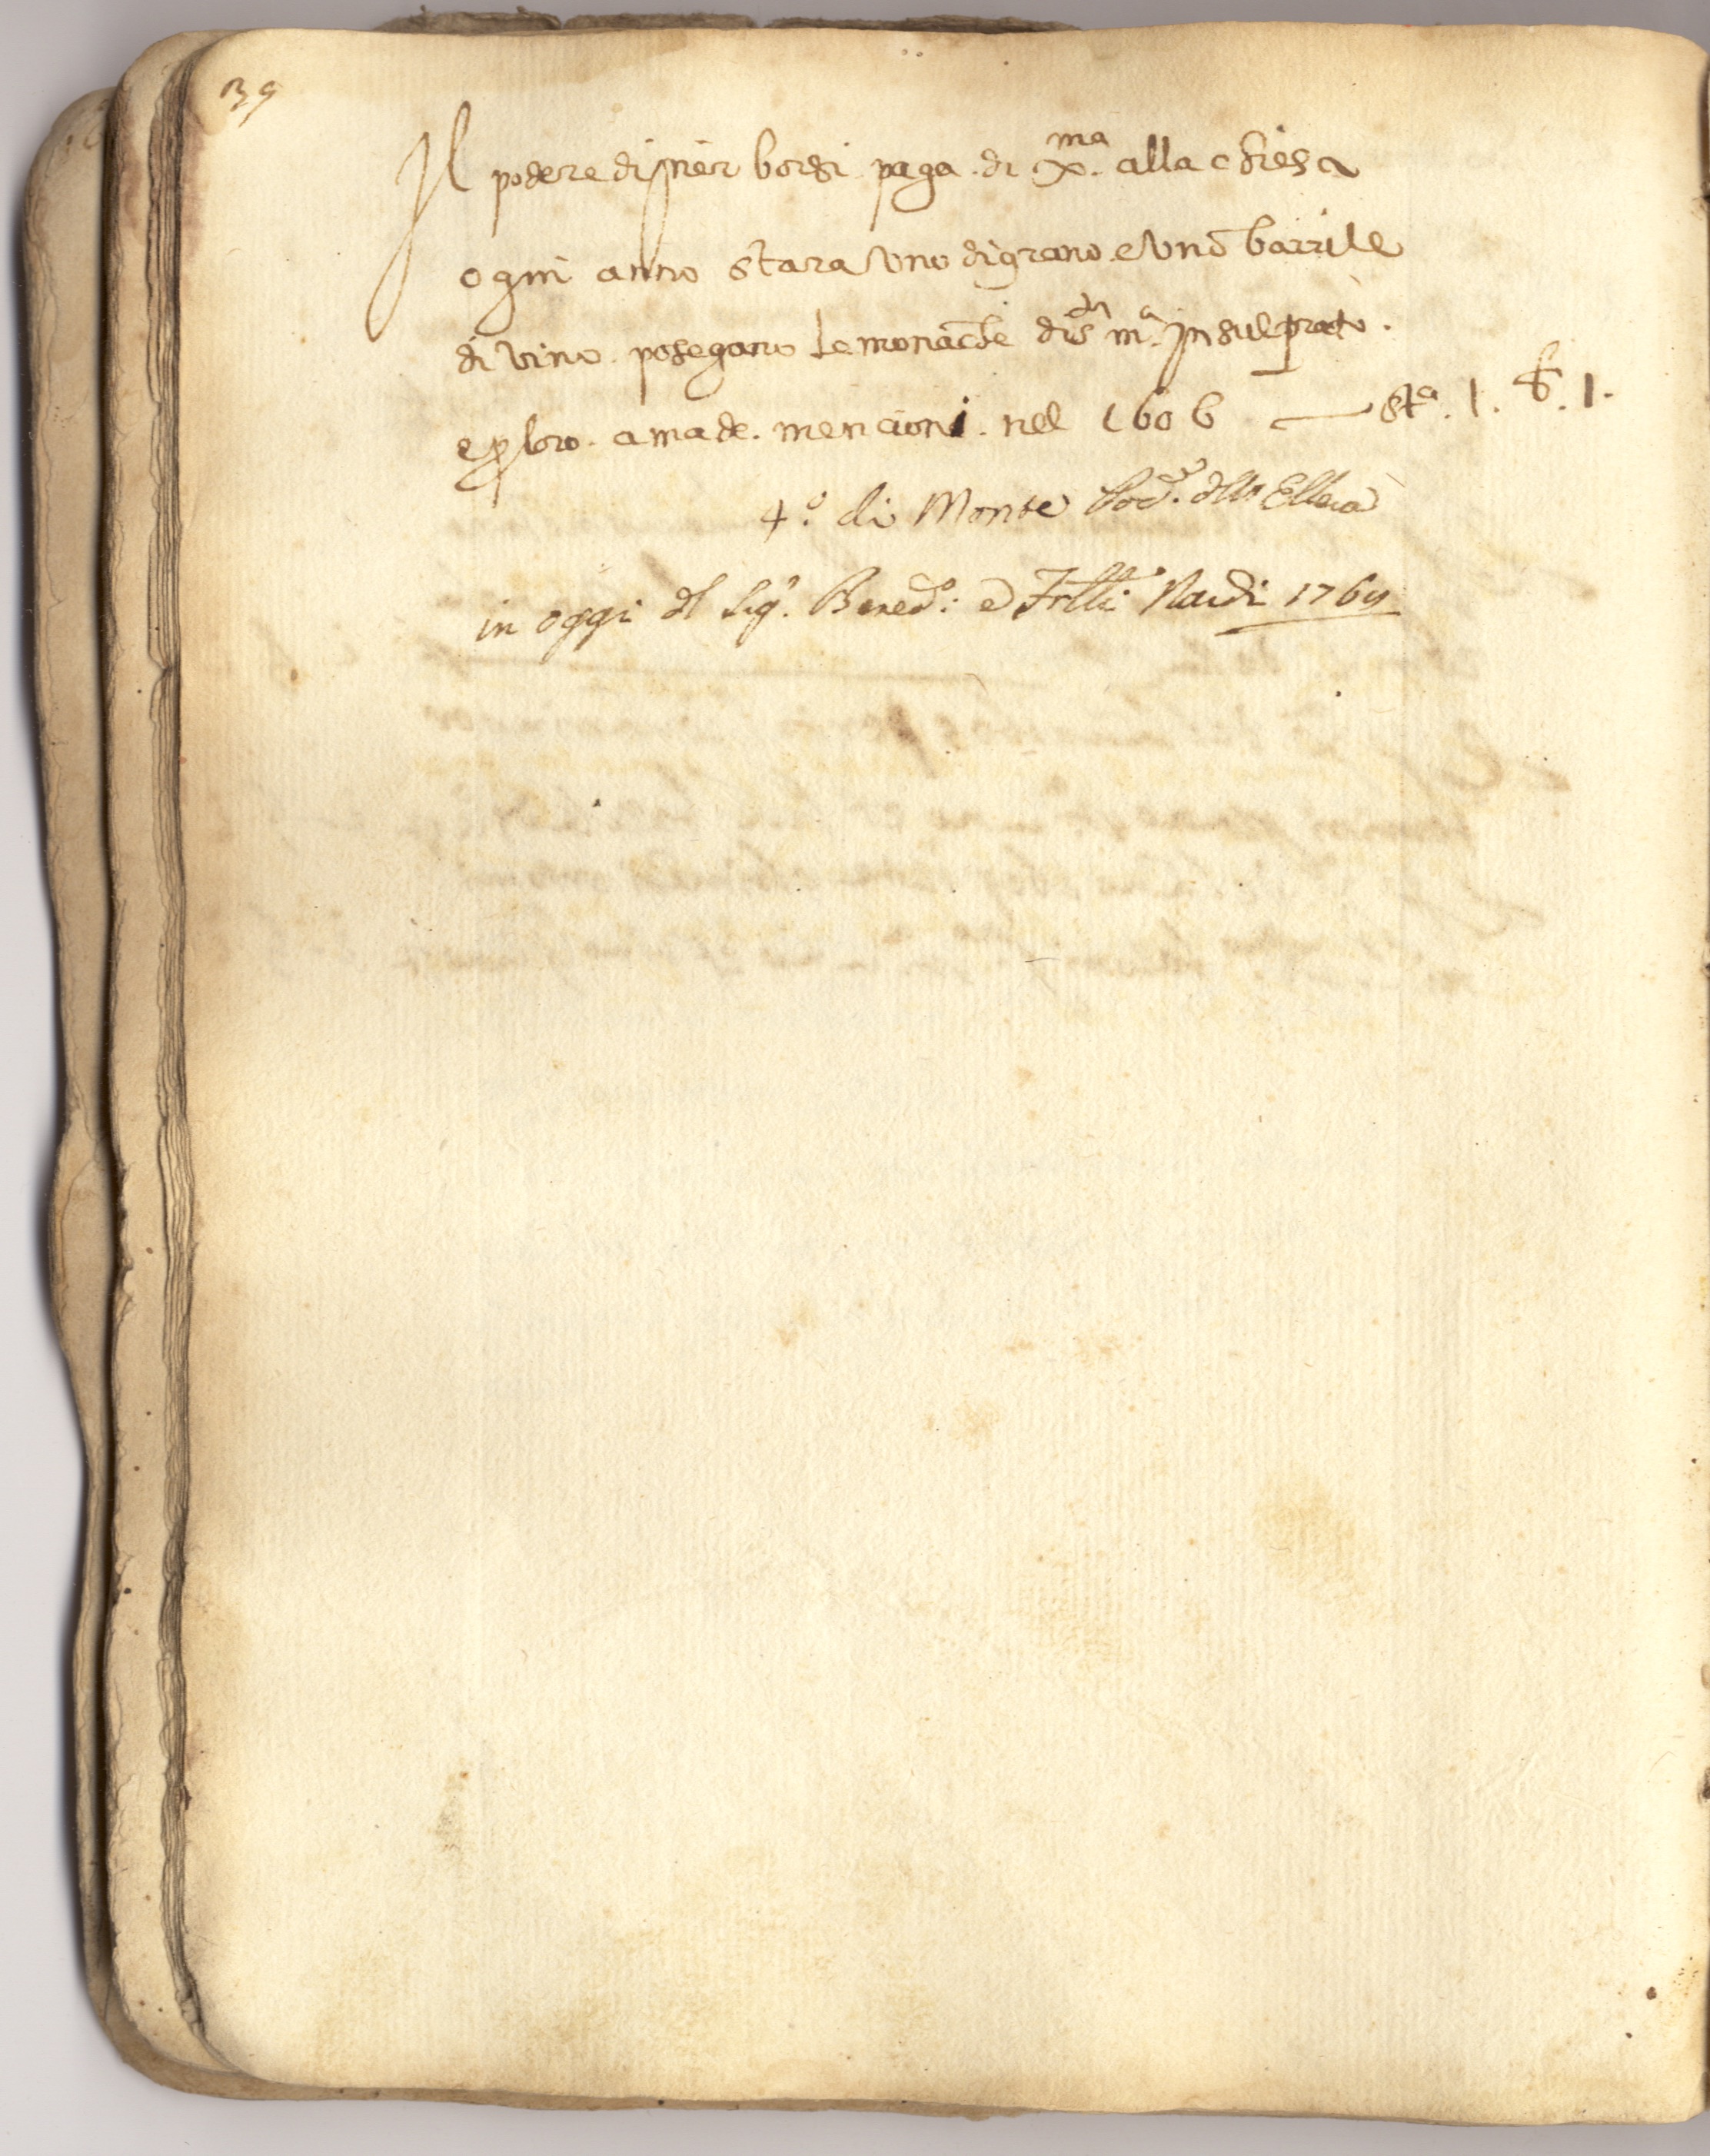 39
Il podere di pier borsi paga di x.ma alla chiesa
ogni anno stara uno di grano e uno barrile
di vino posegano le monache di S.ta m.a in sul prato.
e p loro. amade. mencioni. nel 1606 — st.a 1. b. 1.
4.o di Monte Pod.e dell' Ellera
in oggi del Sig.r Bened.o: e Frlli Nardi 1764